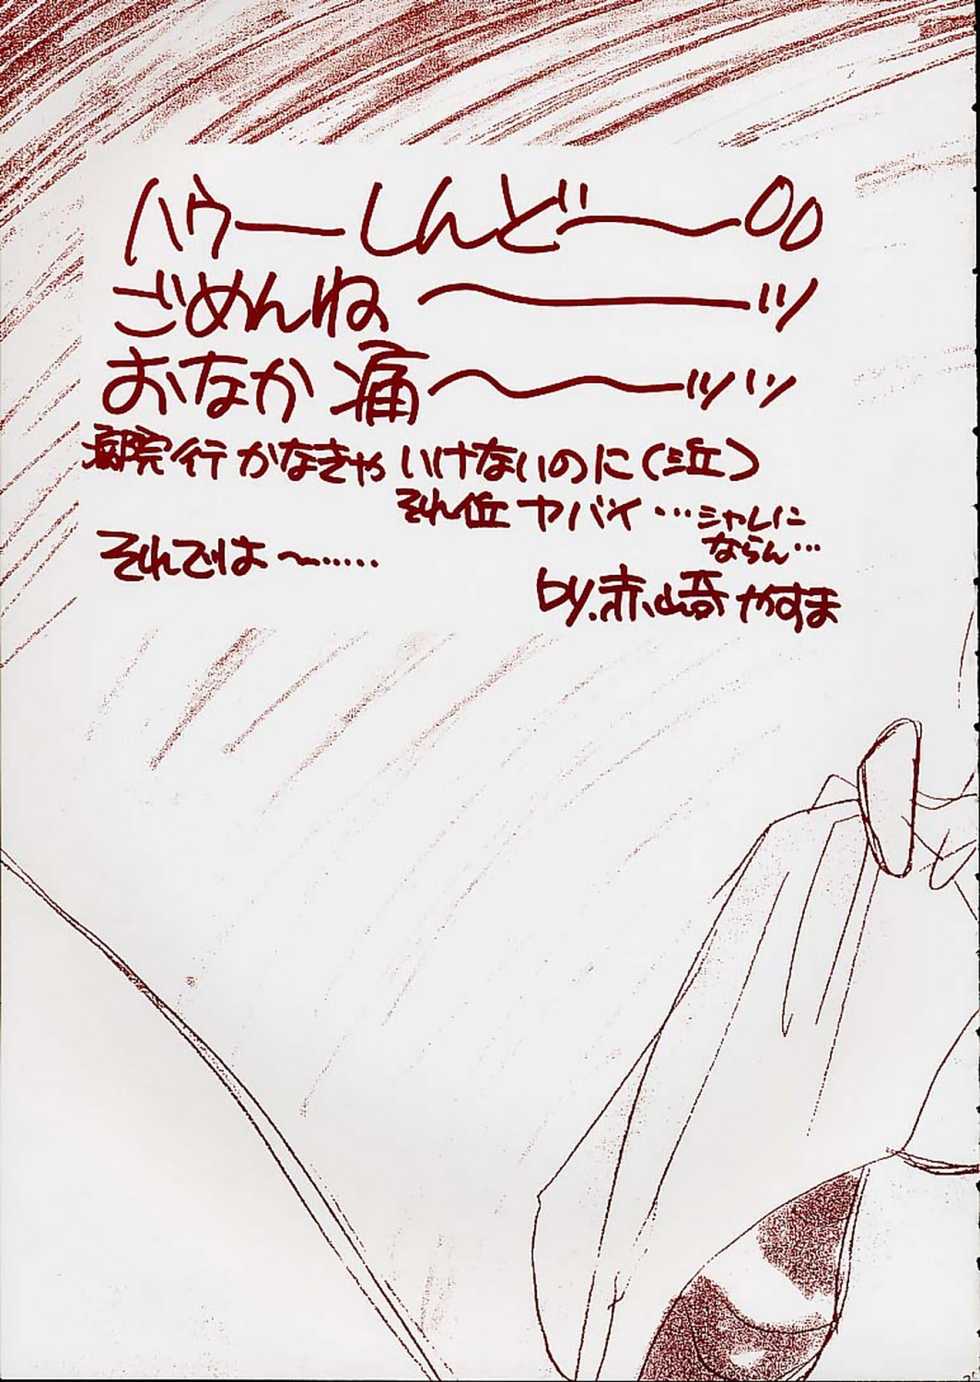 ハウーしんどー〜〇〇
ごめんね〜ーッ
おなか痛〜〜ッッ
病院行かなきゃいけないのに(泣)
それ位ヤバイ…シャレに
ならん…
それでは〜……
by.赤崎やすま